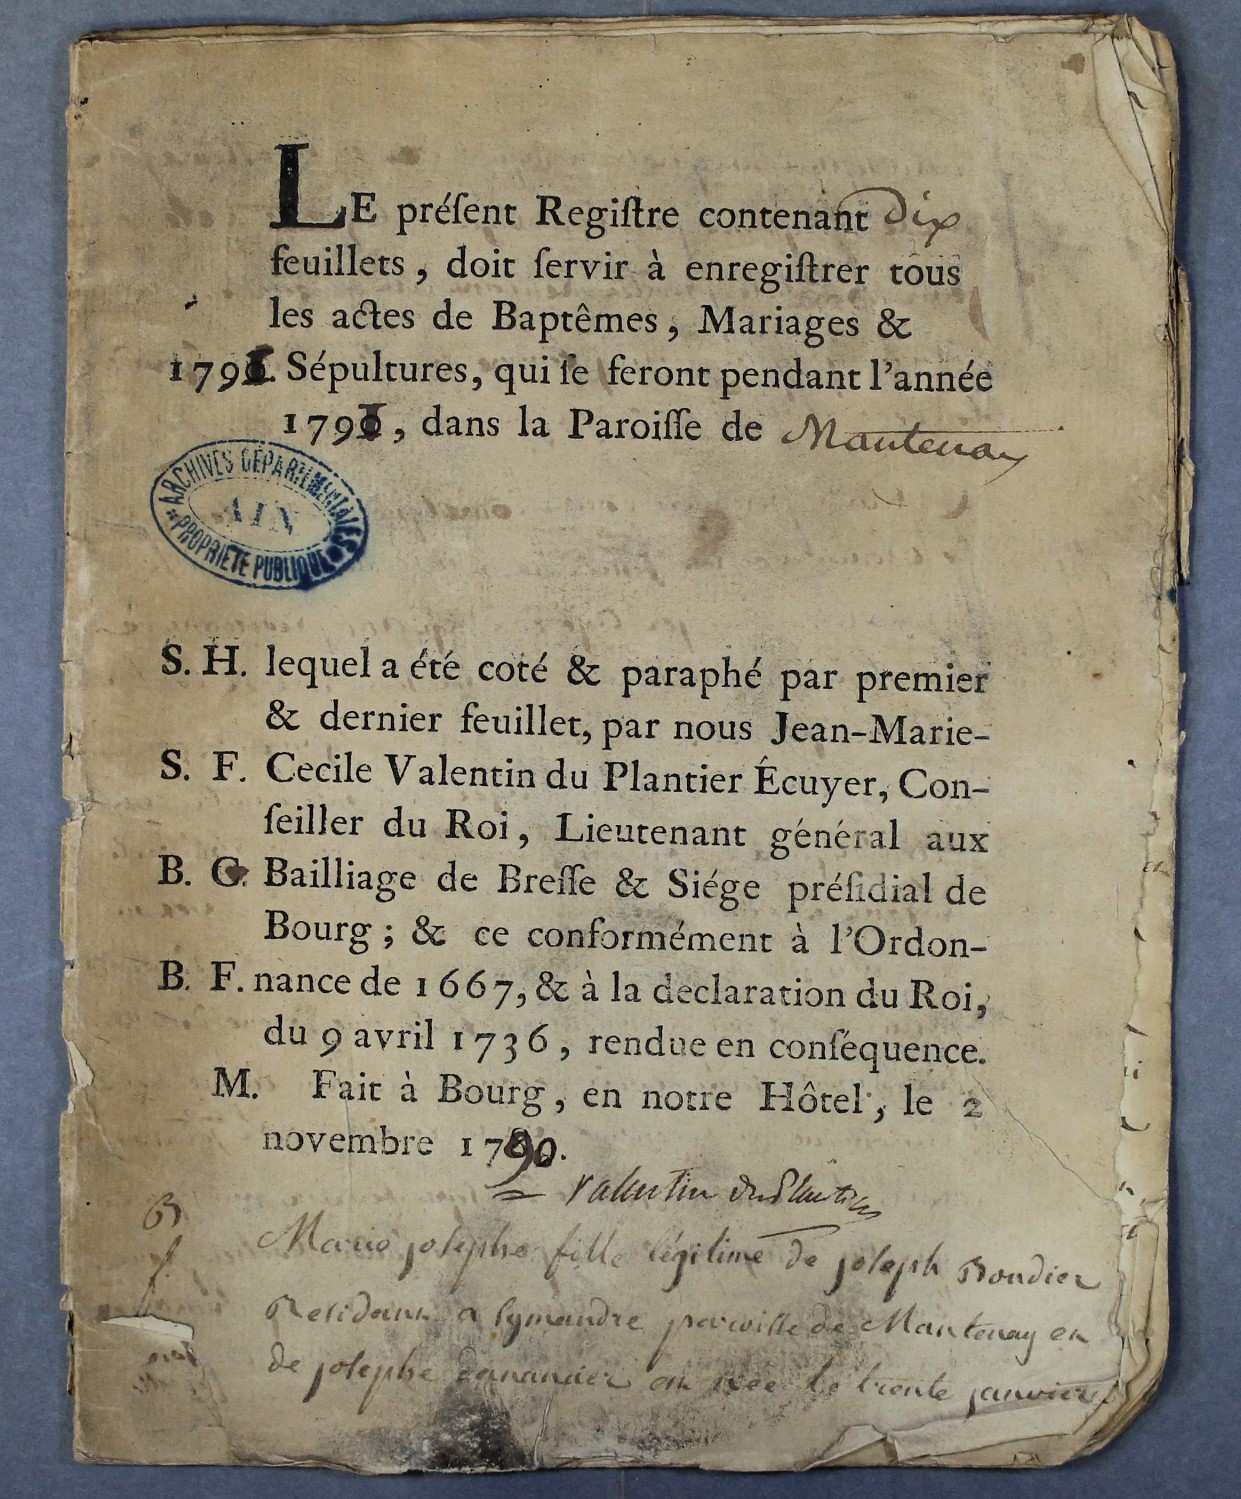 LE préſent Regiſtre contenant Dix
feuillets, doit ſervir à enregiſtrer tous
les actes de Baptêmes, Mariages &
1791. Sépultures, qui ſe feront pendant l'année
1791, dans la Paroiſſe de Mantenay
ARCHIVES DÉPARTEMENTALES
AIN
PROPRIÉTÉ PUBLIQUE
S. H. lequel a été coté & paraphé par premier
& dernier feuillet, par nous Jean-Marie-
S. F. Cecile Valentin du Plantier Êcuyer, Con-
ſeiller du Roi, Lieutenant général aux
B. G. Bailliage de Breſſe & Siége préſidial de
Bourg ; & ce conformément à l'Ordon-
B. F. nance de 1667, & à la declaration du Roi,
du 9 avril 1736, rendue en conſéquence.
M. Fait à Bourg, en notre Hôtel, le 2
novembre 1790.
Valentin duPlantier
B Marie josephe fille légitime de joseph Boudier
f. Residant a symandre parroisse de Mantenay et
de josephe est née le trente janvier